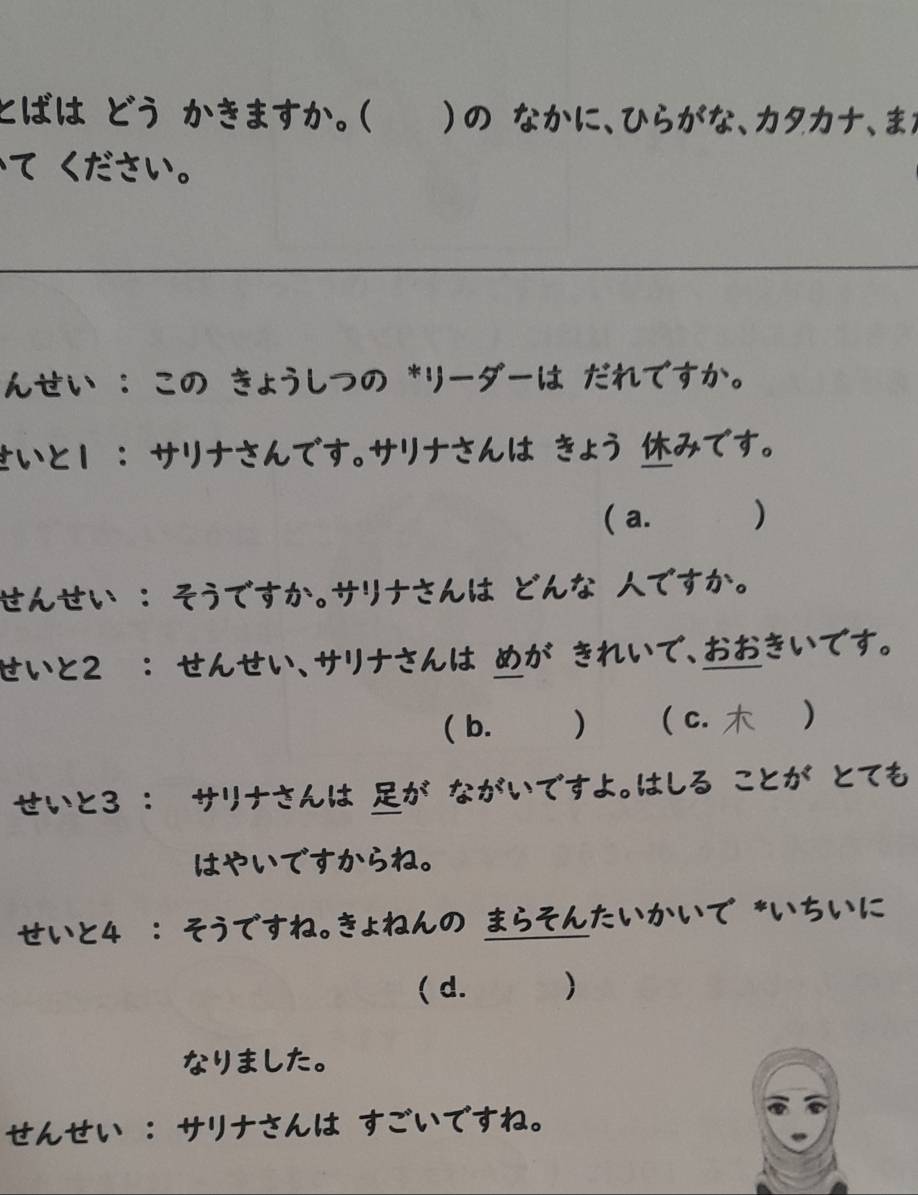 とばは どう かきますか。(　　)の なかに、ひらがな、カタカナ、また
いて ください。
んせい : この きょうしつの *リーダーは だれですか。
せいと1 : サリナさんです。サリナさんは きょう 休みです。
( a.　　)
せんせい : そうですか。サリナさんは どんな 人ですか。
せいと2 : せんせい、サリナさんは めが きれいで、おおきいです。
( b.　　)　( c. 木　)
せいと3 : サリナさんは 足が ながいですよ。はしる ことが とても
はやいですからね。
せいと4 : そうですね。きょねんの まらそんたいかいで *いちいに
( d.　　)
なりました。
せんせい : サリナさんは すごいですね。